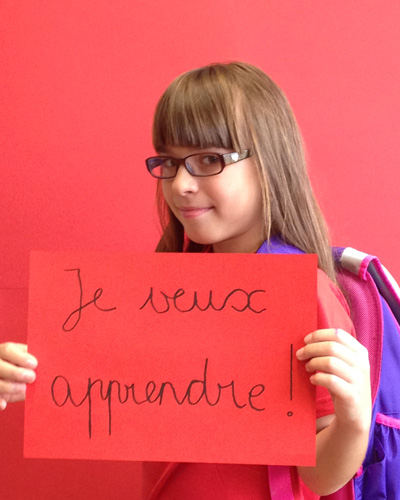 Je veux
apprendre !